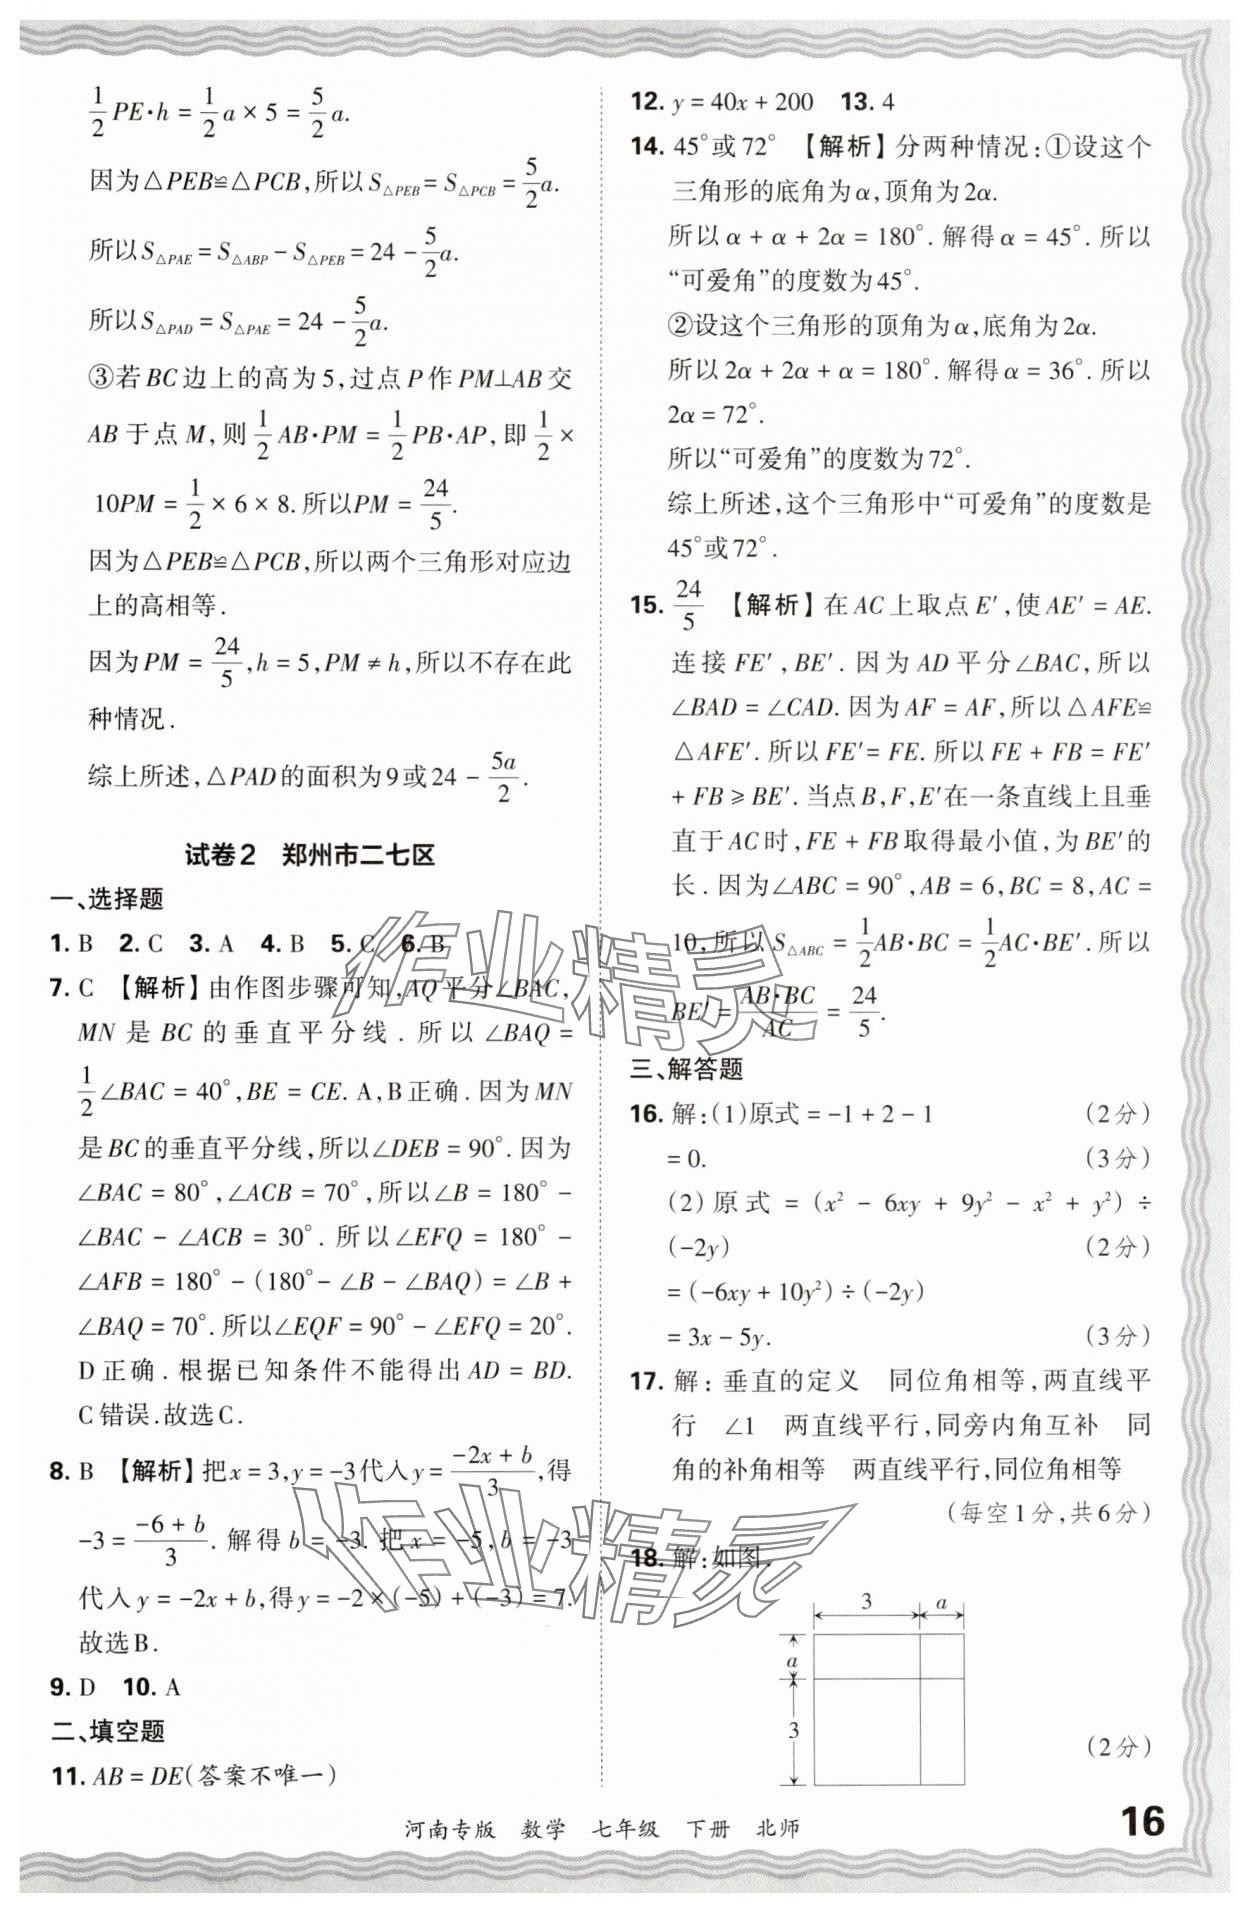 1/2 PE·h = 1/2 a × 5 = 5/2 a.
因为△PEB≌△PCB,所以S△PEB = S△PCB = 5/2 a.
所以S△PAE = S△ABP − S△PEB = 24 − 5/2 a.
所以S△PAD = S△PAE = 24 − 5/2 a.
③若BC边上的高为5,过点P作PM⊥AB交
AB于点M,则 1/2 AB·PM = 1/2 PB·AP,即 1/2 ×
10PM = 1/2 × 6 × 8.所以PM = 24/5.
因为△PEB≌△PCB,所以两个三角形对应边
上的高相等.
因为PM = 24/5,h = 5,PM ≠ h,所以不存在此
种情况.
综上所述,△PAD的面积为9或24 − 5a/2.
试卷2 郑州市二七区
一、选择题
1. B 2. C 3. A 4. B 5. C 6. B
7. C 【解析】由作图步骤可知,AQ平分∠BAC,
MN是BC的垂直平分线.所以∠BAQ =
1/2 ∠BAC = 40°,BE = CE. A,B正确.因为MN
是BC的垂直平分线,所以∠DEB = 90°.因为
∠BAC = 80°,∠ACB = 70°,所以∠B = 180° −
∠BAC − ∠ACB = 30°.所以∠EFQ = 180° −
∠AFB = 180° − (180° − ∠B − ∠BAQ) = ∠B +
∠BAQ = 70°.所以∠EQF = 90° − ∠EFQ = 20°.
D正确.根据已知条件不能得出AD = BD.
C错误.故选C.
8. B 【解析】把x = 3,y = −3代入y = (−2x + b)/3,得
−3 = (−6 + b)/3.解得b = −3.把x = −5,b = −3
代入y = −2x + b,得y = −2 × (−5) + (−3) = 7.
故选B.
9. D 10. A
二、填空题
11. AB = DE(答案不唯一)
12. y = 40x + 200 13. 4
14. 45°或72° 【解析】分两种情况:①设这个
三角形的底角为α,顶角为2α.
所以α + α + 2α = 180°.解得α = 45°.所以
“可爱角”的度数为45°.
②设这个三角形的顶角为α,底角为2α.
所以2α + 2α + α = 180°.解得α = 36°.所以
2α = 72°.
所以“可爱角”的度数为72°.
综上所述,这个三角形中“可爱角”的度数是
45°或72°.
15. 24/5 【解析】在AC上取点E′,使AE′ = AE.
连接FE′,BE′.因为AD平分∠BAC,所以
∠BAD = ∠CAD.因为AF = AF,所以△AFE≌
△AFE′.所以FE′ = FE.所以FE + FB = FE′
+ FB ≥ BE′.当点B,F,E′在一条直线上且垂
直于AC时,FE + FB取得最小值,为BE′的
长.因为∠ABC = 90°,AB = 6,BC = 8,AC =
10,所以S△ABC = 1/2 AB·BC = 1/2 AC·BE′.所以
BE′ = AB·BC/AC = 24/5.
三、解答题
16. 解:(1)原式 = −1 + 2 − 1 (2分)
= 0. (3分)
(2)原式 = (x² − 6xy + 9y² − x² + y²) ÷
(−2y) (2分)
= (−6xy + 10y²) ÷ (−2y)
= 3x − 5y. (3分)
17. 解:垂直的定义 同位角相等,两直线平
行 ∠1 两直线平行,同旁内角互补 同
角的补角相等 两直线平行,同位角相等
(每空1分,共6分)
18. 解:如图.
3 a
a
3
(2分)
河南专版 数学 七年级 下册 北师
16
作业精灵
作业精灵